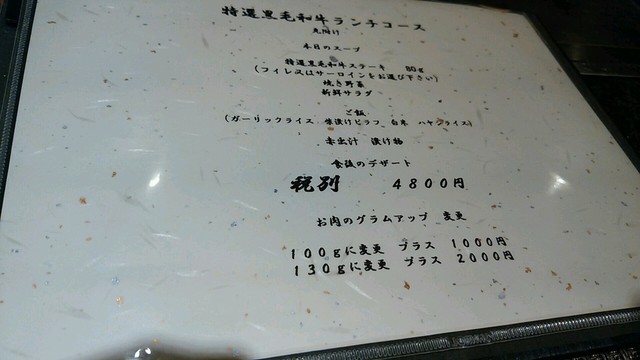 特選黒毛和牛ランチコース
先附け
本日のスープ
特選黒毛和牛ステーキ 80g
(フィレ又はサーロインをお選び下さい)
焼き野菜
新鮮サラダ
ご飯
(ガーリックライス 梅漬けピラフ 白米 ハヤシライス)
赤出汁 漬け物
食後のデザート
税別 4800円
お肉のグラムアップ 変更
100gに変更 プラス 1000円
130gに変更 プラス 2000円